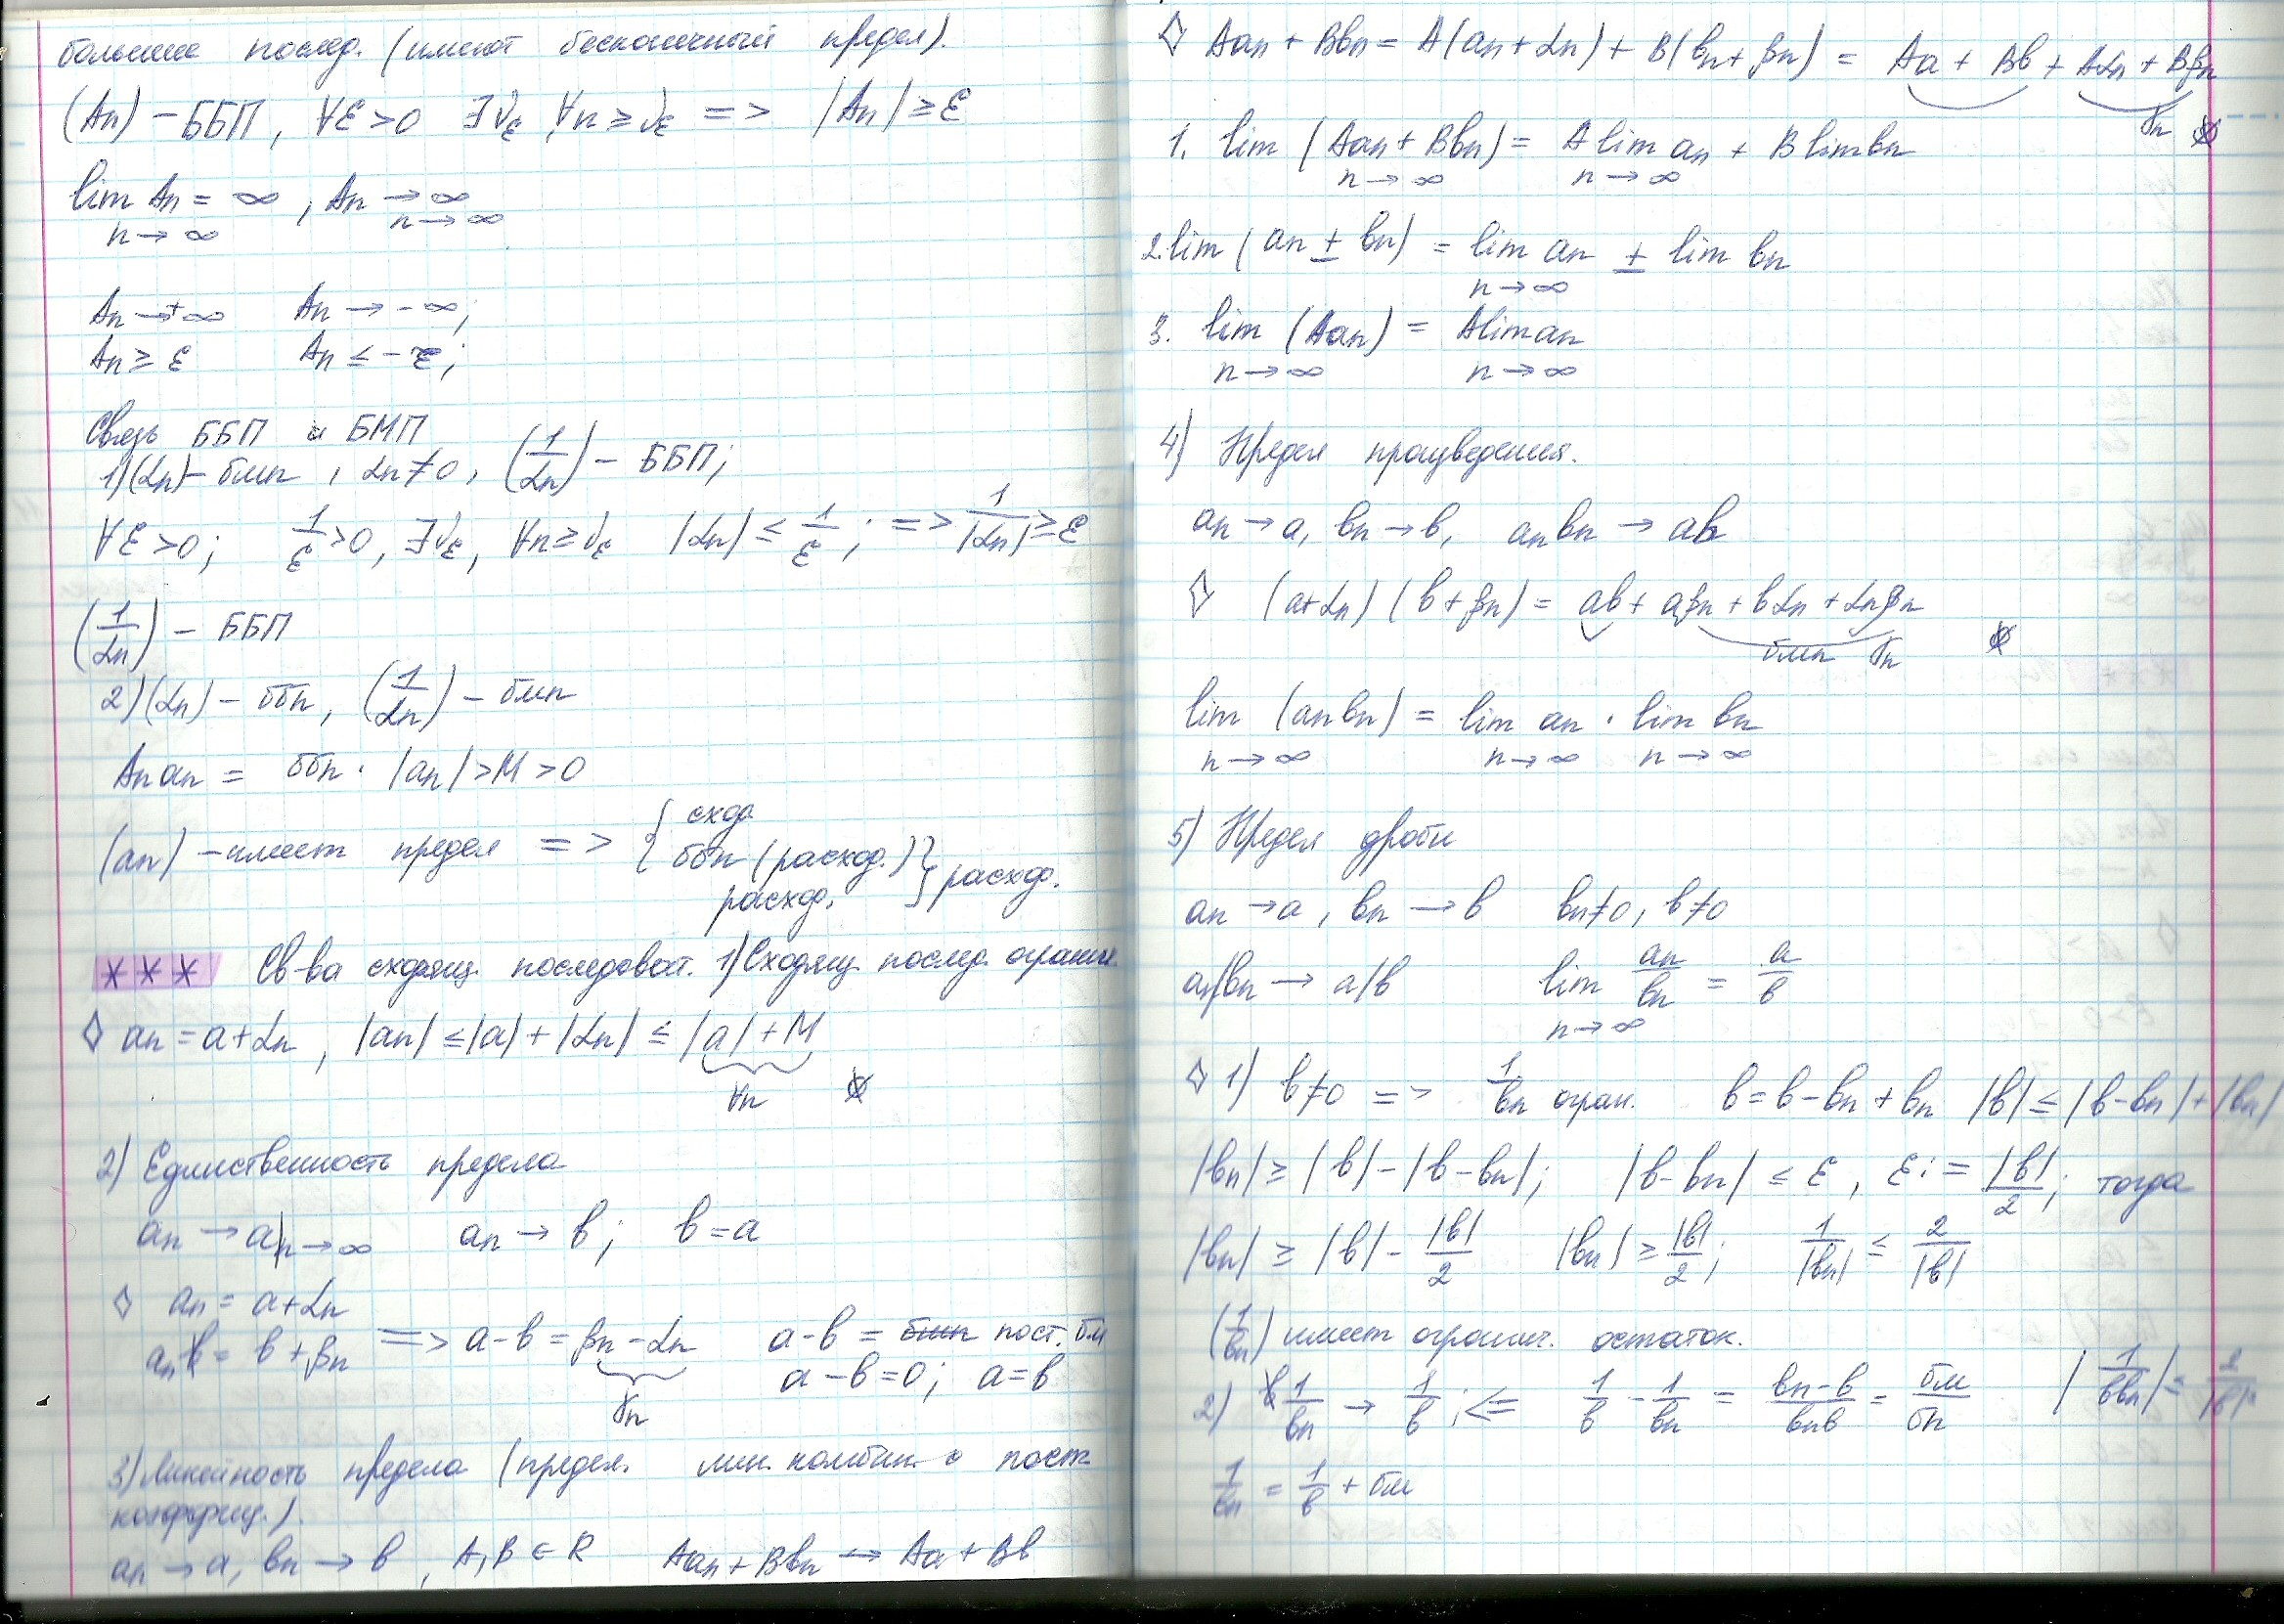 большие послед. (имеют бесконечный предел).
(An) – ББП, ∀ε>0 ∃νε ∀n≥νε => |An|≥ε
lim An = ∞, An → ∞
n→∞ n→∞
An→+∞ An→-∞;
An≥ε An≤-ε;
Связь ББП и БМП
1)(αn)-бмп, αn≠0, (1/αn) – ББП;
∀ε>0; 1/ε>0, ∃νε, ∀n≥νε |αn|≤1/ε; => 1/|αn|≥ε
(1/αn) – ББП
2)(αn) – ббп, (1/αn) – бмп
An an = ббп · |an|>M>0
(an) – имеет предел => { сход
ббп (расход.) } расход.
расход.
*** Св-ва сходящ. последоват. 1) Сходящ. послед. огранич
◊ an = a+αn, |an|≤|a|+|αn|≤|a|+M
∀n
2) Единственность предела
an → a n→∞ an → b; b=a
◊ an = a+αn
an = b+βn => a-b = βn-αn a-b = пост. бм
γn a-b=0; a=b
3) Линейность предела (предел. лин. комбин. с пост
коэффиц.).
an→a, bn→b, A,B∈R Aan+Bbn → Aa+Bb
◊ Aan+Bbn = A(an+αn)+B(bn+βn) = Aa+Bb+Aαn+Bβn
γn
1. lim (Aan+Bbn) = A lim an + B lim bn
n→∞ n→∞
2. lim (an ± bn) = lim an ± lim bn
n→∞
3. lim (Aan) = A lim an
n→∞ n→∞
4) Предел произведения.
an→a, bn→b, anbn → ab
◊ (a+αn)(b+βn) = ab+aβn+bαn+αnβn
бмп γn
lim (anbn) = lim an · lim bn
n→∞ n→∞ n→∞
5) Предел дроби
an→a, bn→b bn≠0, b≠0
an/bn → a/b lim an/bn = a/b
n→∞
◊ 1) b≠0 => 1/bn огран. b=b-bn+bn |b|≤|b-bn|+|bn|
|bn|≥|b|-|b-bn|; |b-bn|≤ε, ε:=|b|/2; тогда
|bn|≥|b|-|b|/2 |bn|≥|b|/2; 1/|bn|≤2/|b|
(1/bn) имеет огранич. остаток.
2) 1/bn → 1/b; <= 1/b - 1/bn = bn-b/bnb = бм/бп |1/bbn|=
1/bn = 1/b + бм